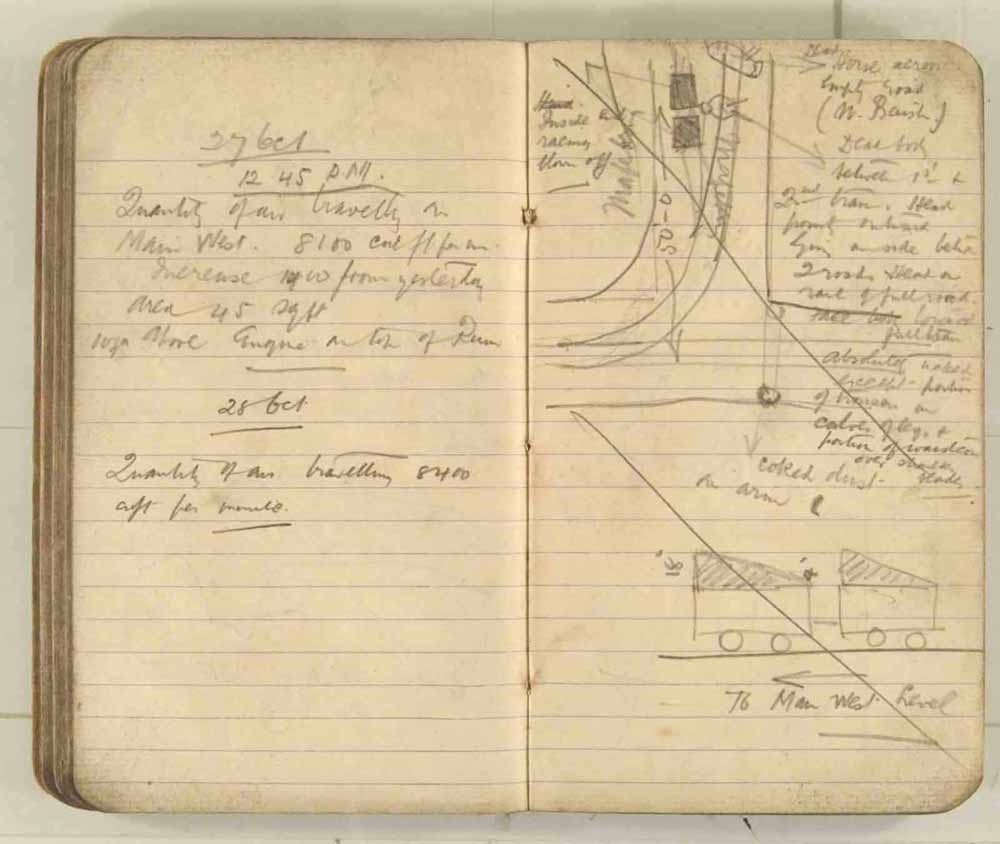 27 Oct
12 45 P.M.
Quantity of air travelling on
Main West. 8100 cub ft per m.
Increase from yesterday
area 45 sqft
above Engine on top of
28 Oct
Quantity of air travelling 8400
cuft per minute.
Inside
racing
blown off
50-0
Horse across
Empty road
Dead body
between 1st &
2nd tram. Head
outside
on side between
2 roads Head on
rail of full road.
face toward
full
absolutely naked
except portion
of trousers on
calves of legs &
portion of
over
coked dust
on arm
18"
4"
To Main West Level